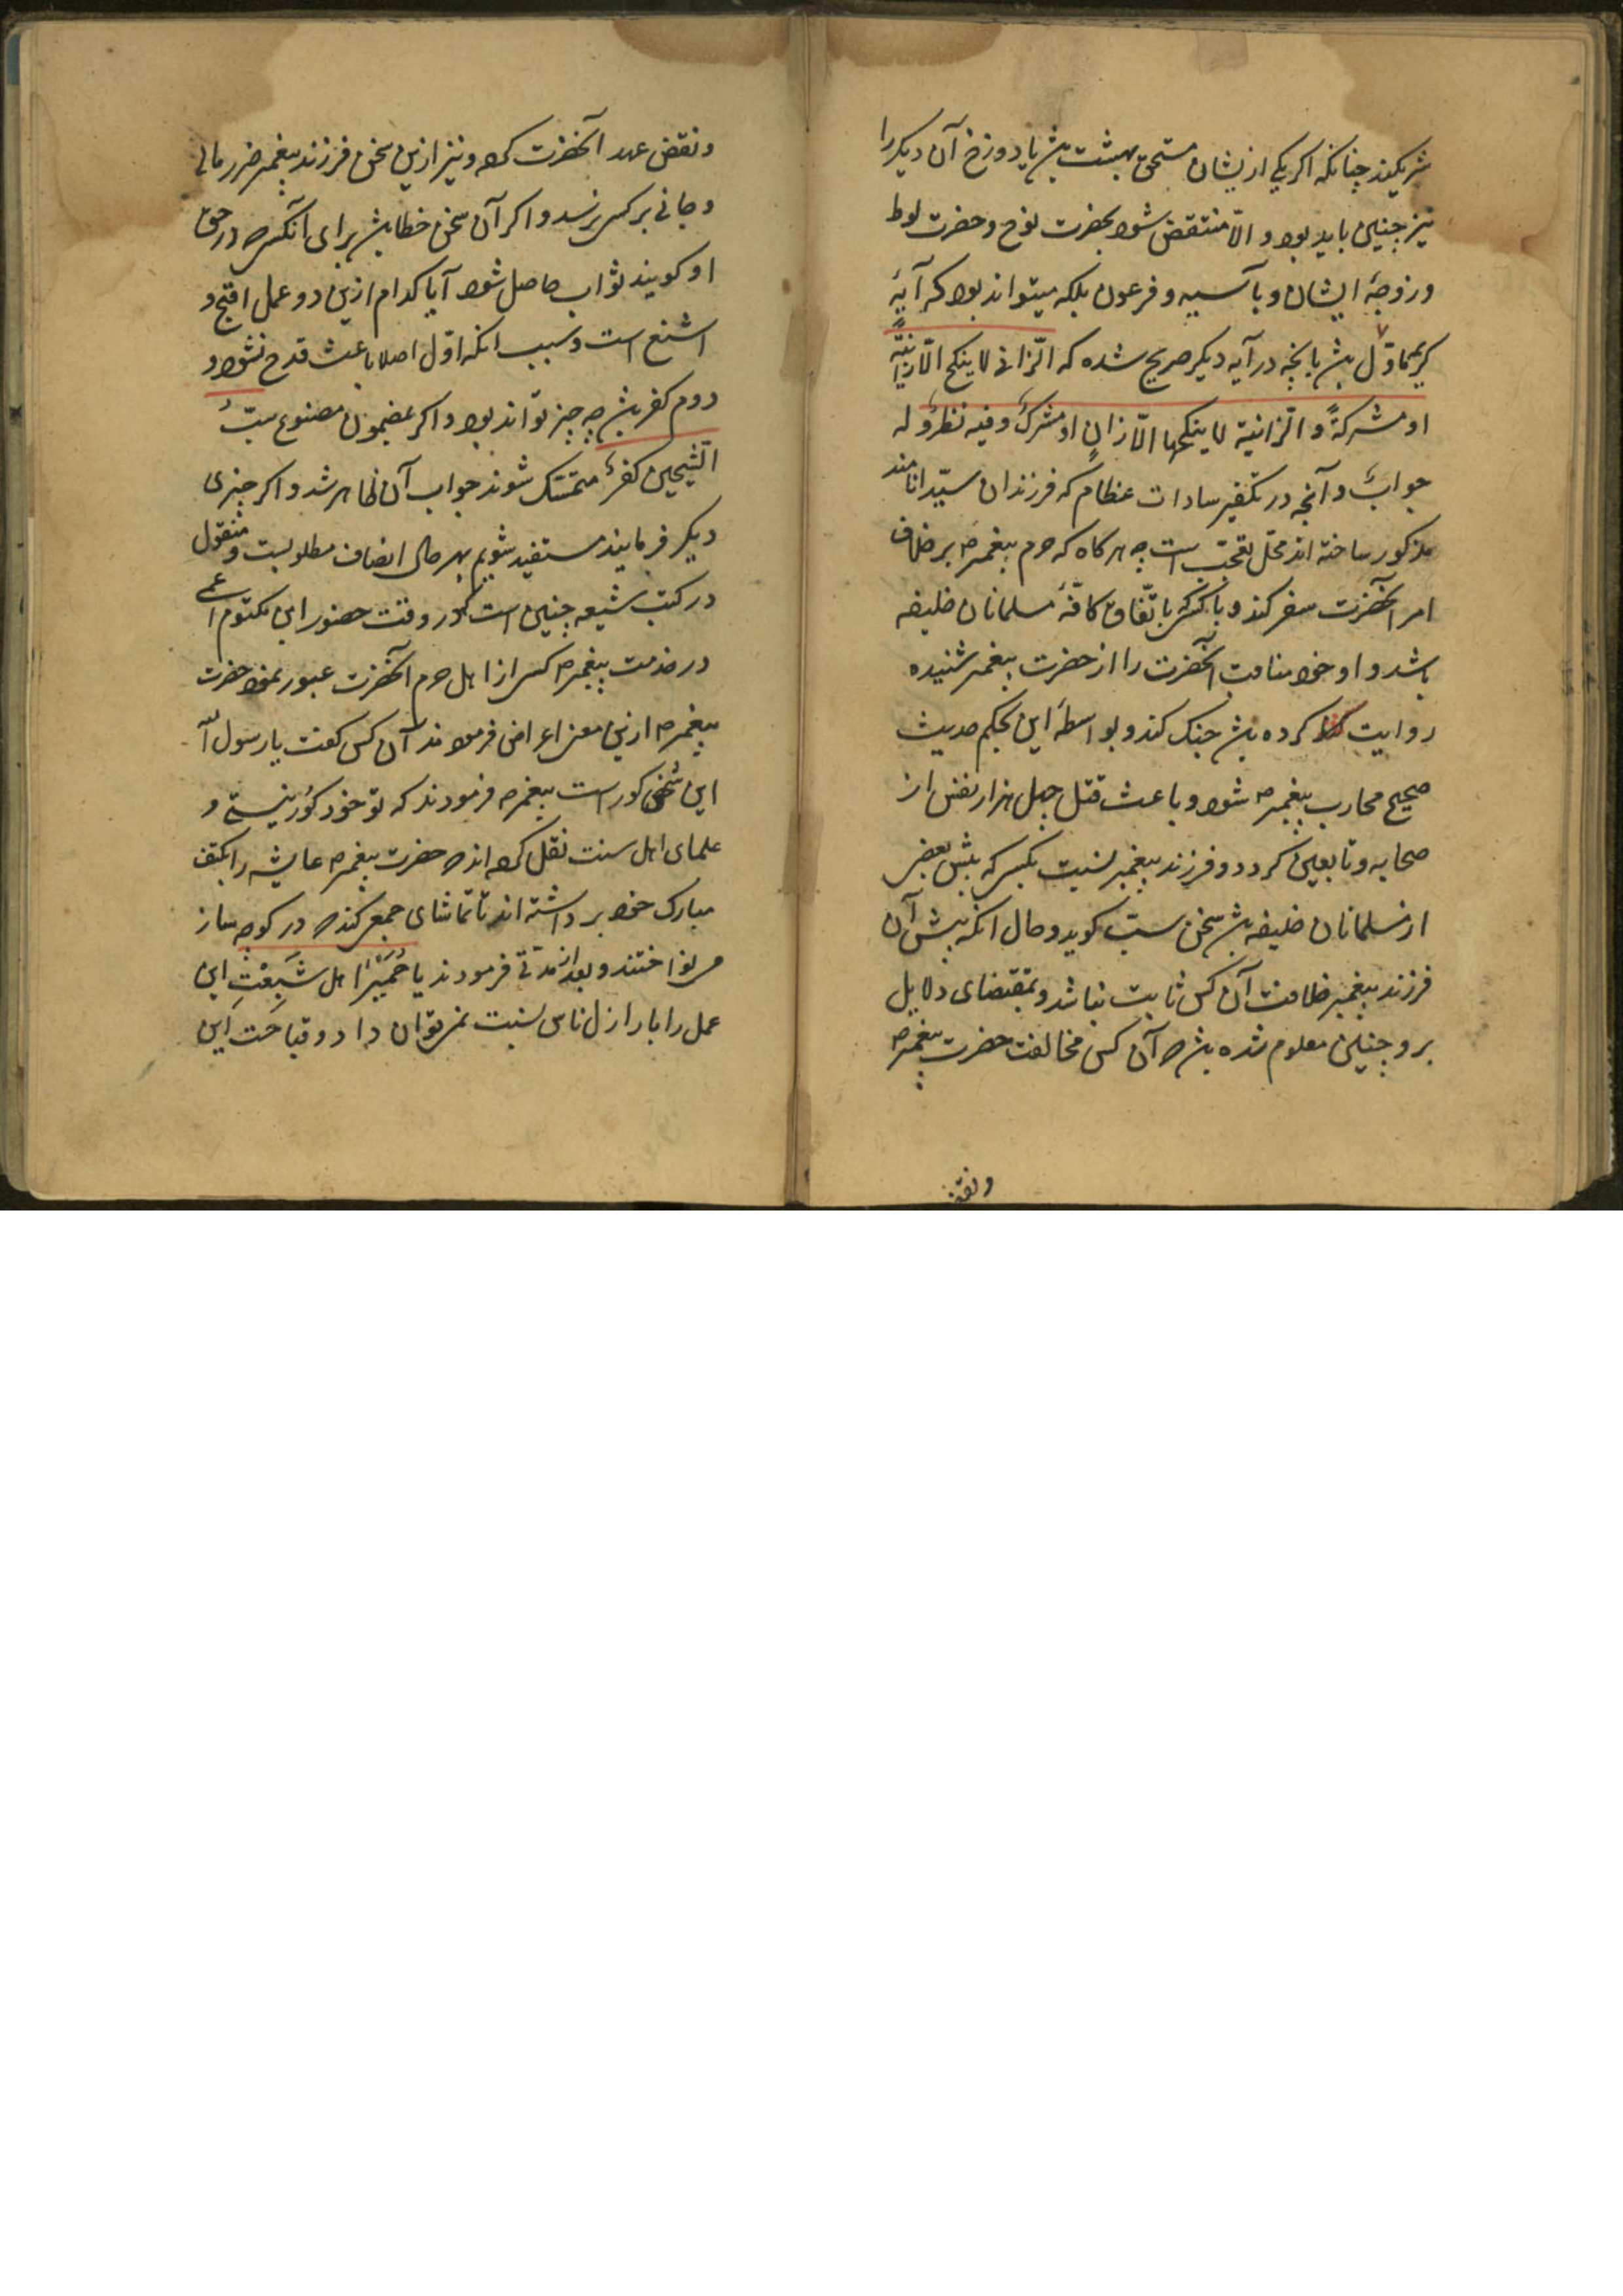 شریکیند چنانکه اکر یکی ازیشان مستحق بهشت باشد یا دوزخ آن دیکر را
نیز چنین باید بود و الّا منتقض شود بحضرت نوح و حضرت لوط
و زوجهٔ ایشان و بآسیه و فرعون بلکه میتواند بود که آیهٔ
کریمه ماوّل باشد بانچه در آیه دیکر صریح شده که الّزانی لا ینکح الّا زانیةً
او مشرکةً و الّزانیة لا ینکحها الّا زانٍ او مشرکٌ و فیه نظرٌ و له
جوابٌ و آنچه در تکفیر سادات عظام که فرزندان سیّد انامند
مذکور ساخته اند محلّ تعجّب است چه هرکاه که حرم پیغمبر ص بر خلاف
امر آنحضرت سفر کند و با کسی که باتّفاق کافّهٔ مسلمانان خلیفه
باشد و او خود مناقب آنحضرت را از حضرت پیغمبر شنیده
روایت کرده باشد جنک کند و بواسطهٔ این بحکم حدیث
صحیح محارب پیغمبر ص شود و باعث قتل چهل هزار نفس از
صحابه و تابعین کردد و فرزند پیغمبر نسبت بکسی که پیش بعضی
از مسلمانان خلیفه باشد سخن سبّ کوید و حال انکه پیش آن
فرزند پیغمبر خلافت آن کس ثابت نباشد و بمقتضای دلایل
برو چنین معلوم شده باشد که آن کس مخالفت حضرت پیغمبر ص
ونقض
و نقض عهد آنحضرت کرده و نیز ازین سخن فرزند پیغمبر ضرر مالی
و جانی بر کسی نرسد و اکر آن سخن خطا باشد برای آنکس که در حق
او کویند ثواب حاصل شود آیا کدام ازین دو عمل اقبح و
اشنع است و سبب انکه اوّل اصلا باعث قدح نشود و
دوم کفر باشد چه چیز تواند بود و اکر بمضمون مصنوع سبّ
الشیخین کفرٌ متمسّک شوند جواب آن ظاهر شد و اکر چیزی
دیکر فرمایند مستفید شویم بهر حال انصاف مطلوبست و منقول
در کتب شیعه چنین است که در وقت حضور ابن مکتوم اعمی
در خدمت پیغمبر ص کسی از اهل حرم آنحضرت عبور نمود حضرت
پیغمبر ص ازین معنی اعراض فرمودند آن کس کفت یا رسول الله
این شخص کور است پیغمبر ص فرمودند که تو خود کور نیستی و
علمای اهل سنت نقل کرده اند که حضرت پیغمبر ص عایشه را بکتف
مبارک خود برداشته اند تا تماشای جمعی کند که در کوچه ساز
می نواختند و بعد از مدّتی فرمودند یا حُمَیْرا هل شَبِعْتِ این
عمل را بارازل ناس نسبت نمی توان داد و قباحت این